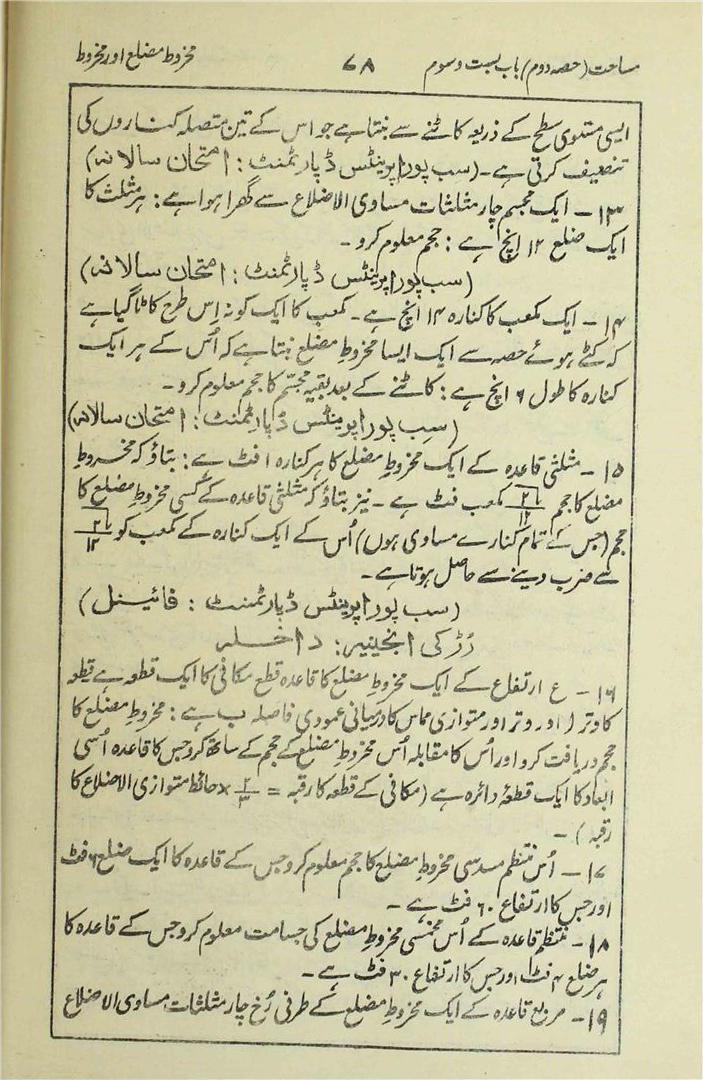 مساحت (حصہ دوم) باب بست و سوم ۶۸ مخروط مضلع اور مخروط
ایسی مستوی سطح کے ذریعہ کاٹنے سے بنتا ہے جو اس کے تین متصلہ کناروں کی
تنصیف کرتی ہے۔ (سب پور اپرینٹس ڈپارٹمنٹ: امتحان سالانہ)
۱۳ - ایک مجسم چار مثلثات مساوی الاضلاع سے گھرا ہوا ہے: ہر مثلث کا
ایک ضلع ۱۲ انچ ہے: حجم معلوم کرو۔
(سب پور اپرینٹس ڈپارٹمنٹ: امتحان سالانہ)
۱۴ - ایک مکعب کا کنارہ ۱۴ انچ ہے۔ مکعب کا ایک کونہ اِس طرح کاٹا گیا ہے
کہ کٹے ہوئے حصہ سے ایک ایسا مخروطِ مضلع بنتا ہے کہ اُس کے ہر ایک
کنارہ کا طول ۶ انچ ہے: کاٹنے کے بعد بقیہ مجسّم کا حجم معلوم کرو۔
(سب پور اپرینٹس ڈپارٹمنٹ: امتحان سالانہ)
۱۵ - مثلثی قاعدہ کے ایک مخروطِ مضلع کا ہر کنارہ ۱ فٹ ہے: بتاؤ کہ مخروطِ
مضلع کا حجم √۲/۱۲ مکعب فٹ ہے۔ نیز بتاؤ کہ مثلثی قاعدہ کے کسی مخروطِ مضلع کا
حجم (جس کے تمام کنارے مساوی ہوں) اُس کے ایک کنارہ کے مکعب کو √۲/۱۲
سے ضرب دینے سے حاصل ہوتا ہے۔
(سب پور اپرینٹس ڈپارٹمنٹ: فائینل)
رُڑکی انجینیر: داخلہ
۱۶ - ع ارتفاع کے ایک مخروطِ مضلع کا قاعدہ قطع مکافی کا ایک قطعہ ہے قطعہ
کا وتر ا اور وتر اور متوازی مماس کا درمیانی عمودی فاصلہ ب ہے: مخروطِ مضلع کا
حجم دریافت کرو اور اُس کا مقابلہ اُس مخروطِ مضلع کے حجم کے ساتھ کرو جس کا قاعدہ اُسی
ابعاد کا ایک قطعۂ دائرہ ہے (مکافی کے قطعہ کا رقبہ = ۲/۳ × حائط متوازی الاضلاع کا
رقبہ)۔
۱۷ - اُس منتظم مسدسی مخروطِ مضلع کا حجم معلوم کرو جس کے قاعدہ کا ایک ضلع ۶ فٹ
اور جس کا ارتفاع ۶۰ فٹ ہے۔
۱۸ - منتظم قاعدہ کے اُس مخمسی مخروطِ مضلع کی جسامت معلوم کرو جس کے قاعدہ کا
ہر ضلع ۴ فٹ اور جس کا ارتفاع ۳۰ فٹ ہے۔
۱۹ - مربع قاعدہ کے ایک مخروطِ مضلع کے طرفی رُخ چار مثلثات مساوی الاضلاع